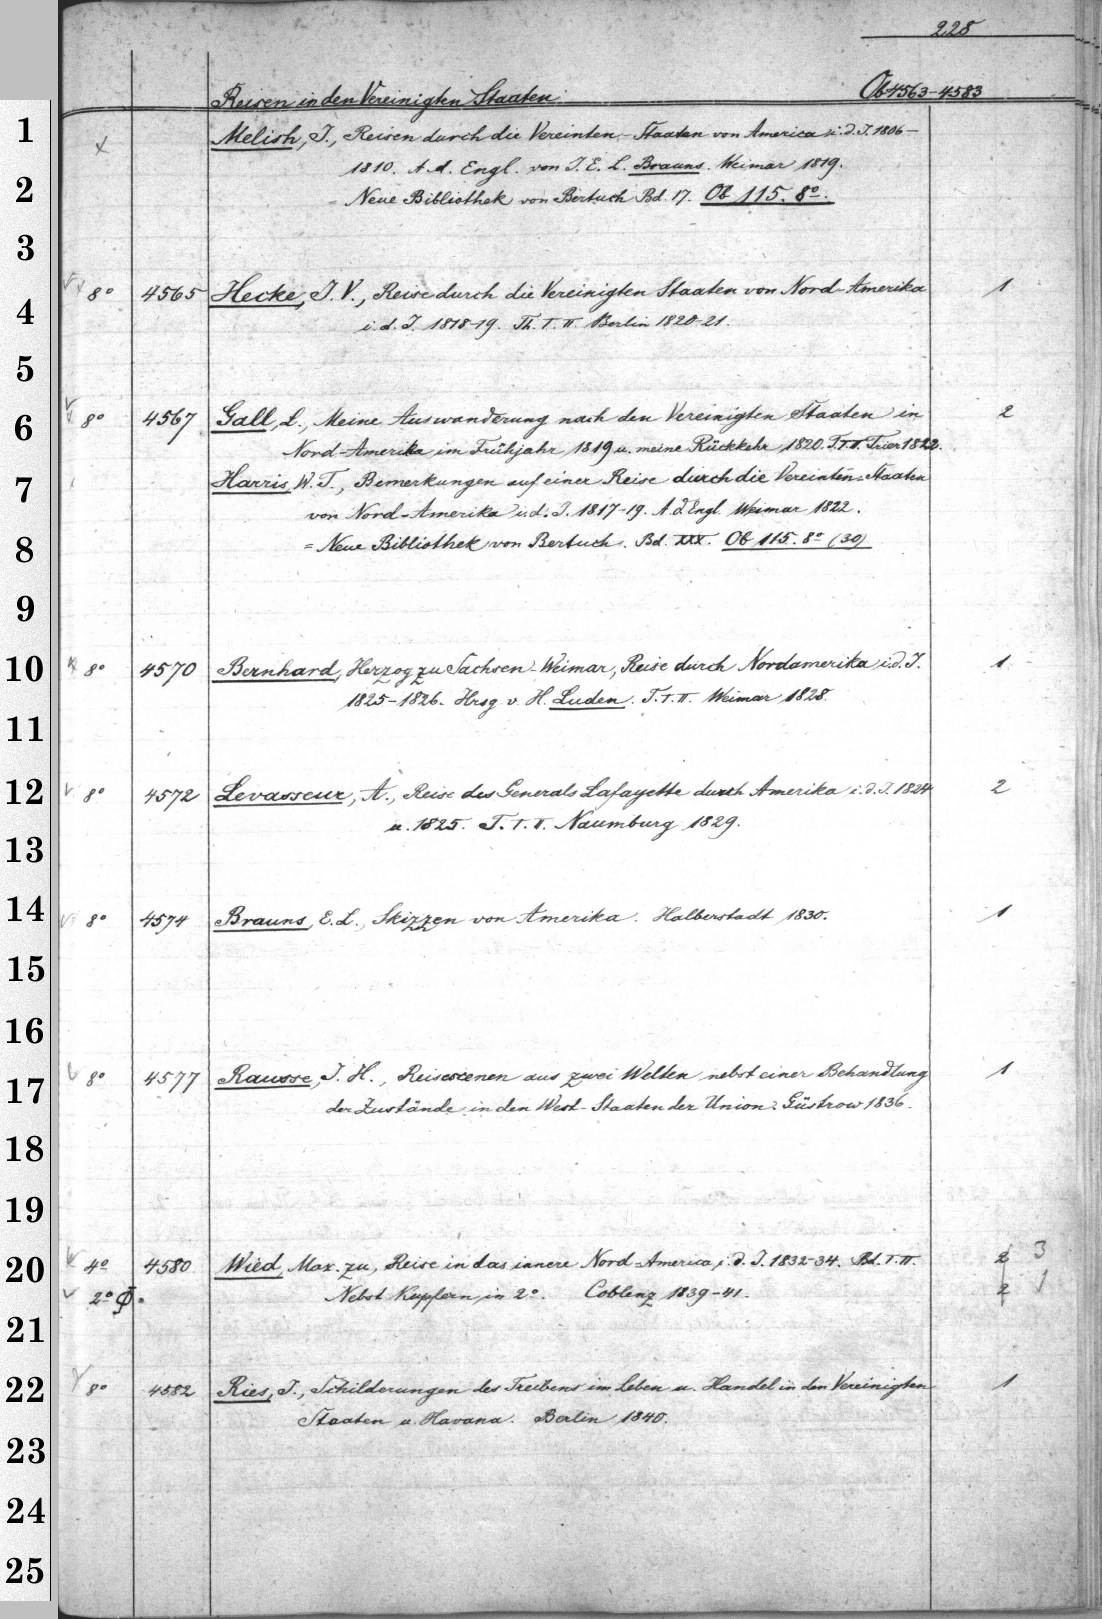 228
Reisen in den Vereinigten Staaten. Ob 4563-4583
1
x Melish, J., Reisen durch die Vereinten-Staaten von America i. d. J. 1806-
1810. A. d. Engl. von J. E. L. Brauns. Weimar 1819.
2
= Neue Bibliothek von Bertuch Bd. 17. Ob 115. 8°.
3
8° 4565 Hecke, J. V., Reise durch die Vereinigten Staaten von Nord-Amerika 1
4
i. d. J. 1818-19. Th. I. II. Berlin 1820-21.
5
6
8° 4567 Gall, L., Meine Auswanderung nach den Vereinigten Staaten in 2
Nord-Amerika im Frühjahr 1819 u. meine Rückkehr 1820. T. I. II. Trier 1822.
7
Harris, W. T., Bemerkungen auf einer Reise durch die Vereinten-Staaten
von Nord-Amerika i. d. J. 1817-19. A. d. Engl. Weimar 1822.
8
= Neue Bibliothek von Bertuch. Bd. XXX. Ob 115. 8° (30)
9
10
8° 4570 Bernhard, Herzog zu Sachsen-Weimar, Reise durch Nordamerika i. d. J. 1
1825-1826. Hrsg. v. H. Luden. T. I. II. Weimar 1828.
11
12
8° 4572 Levasseur, A., Reise des Generals Lafayette durch Amerika i. d. J. 1824 2
u. 1825. T. I. II. Naumburg 1829.
13
14
8° 4574 Brauns, E. L., Skizzen von Amerika. Halberstadt 1830. 1
15
16
17
8° 4577 Rausse, J. H., Reisescenen aus zwei Welten nebst einer Behandlung 1
der Zustände in den West-Staaten der Union. Güstrow 1836.
18
19
20
4° 4580 Wied, Max. zu, Reise in das innere Nord-America, i. d. J. 1832-34. Bd. I. II. 2 3
2° Φ. Nebst Kupfern in 2°. Coblenz 1839-41. 2 1
21
22
8° 4582 Ries, J., Schilderungen des Treibens im Leben u. Handel in den Vereinigten 1
Staaten u. Havana. Berlin 1840.
23
24
25